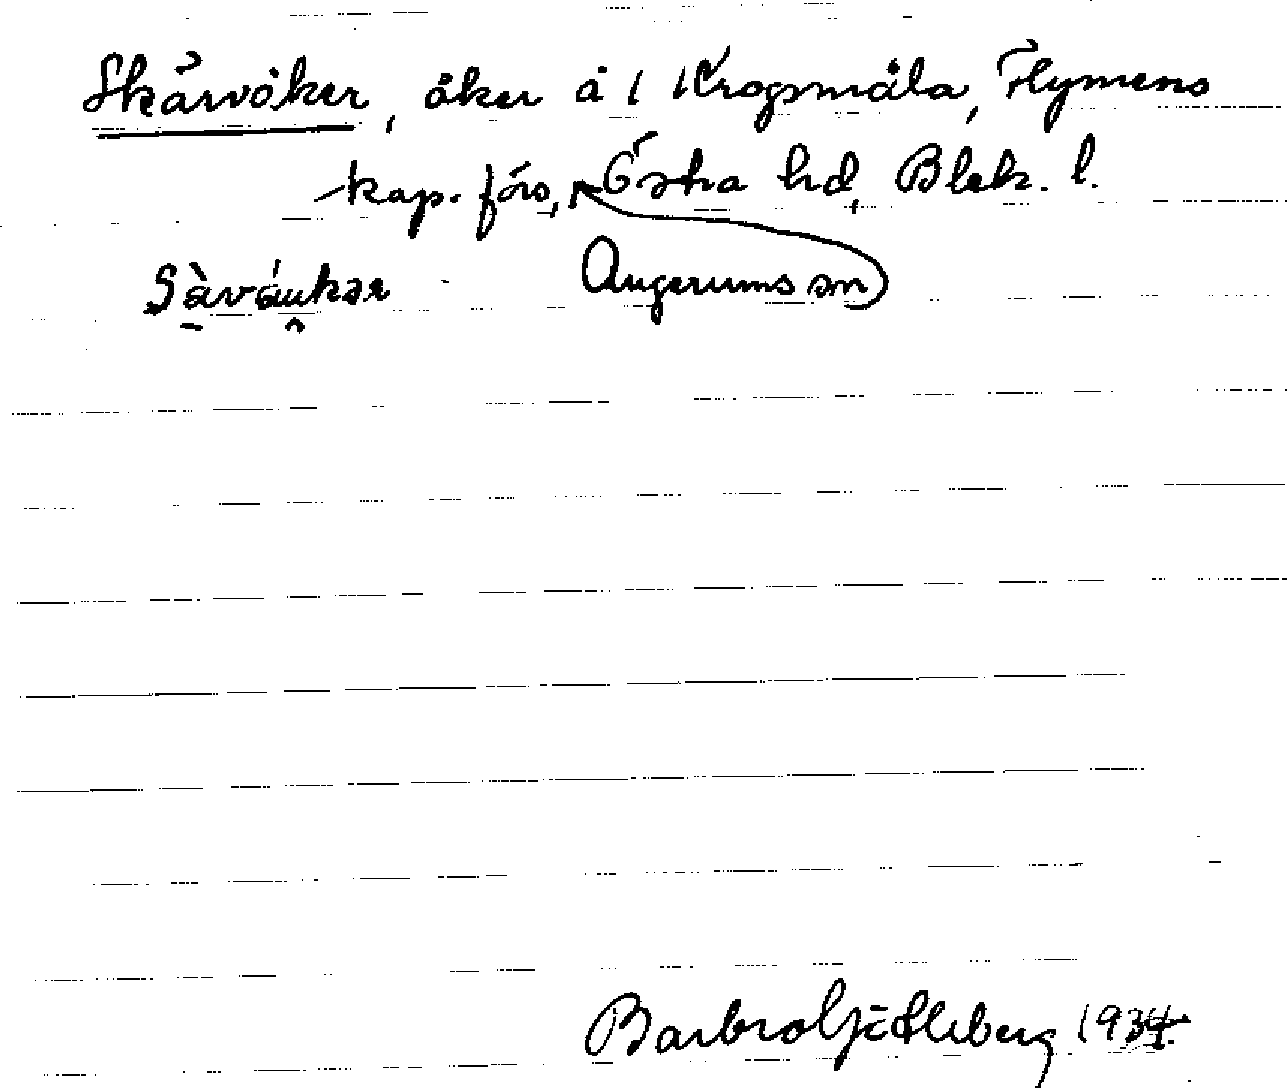 Skärvåker, åker å 1 Krogsmåla, Flymens
kap. förs, Östra hd, Blek. l.
Augerums sn
Barbro Ljetleberg 1934.